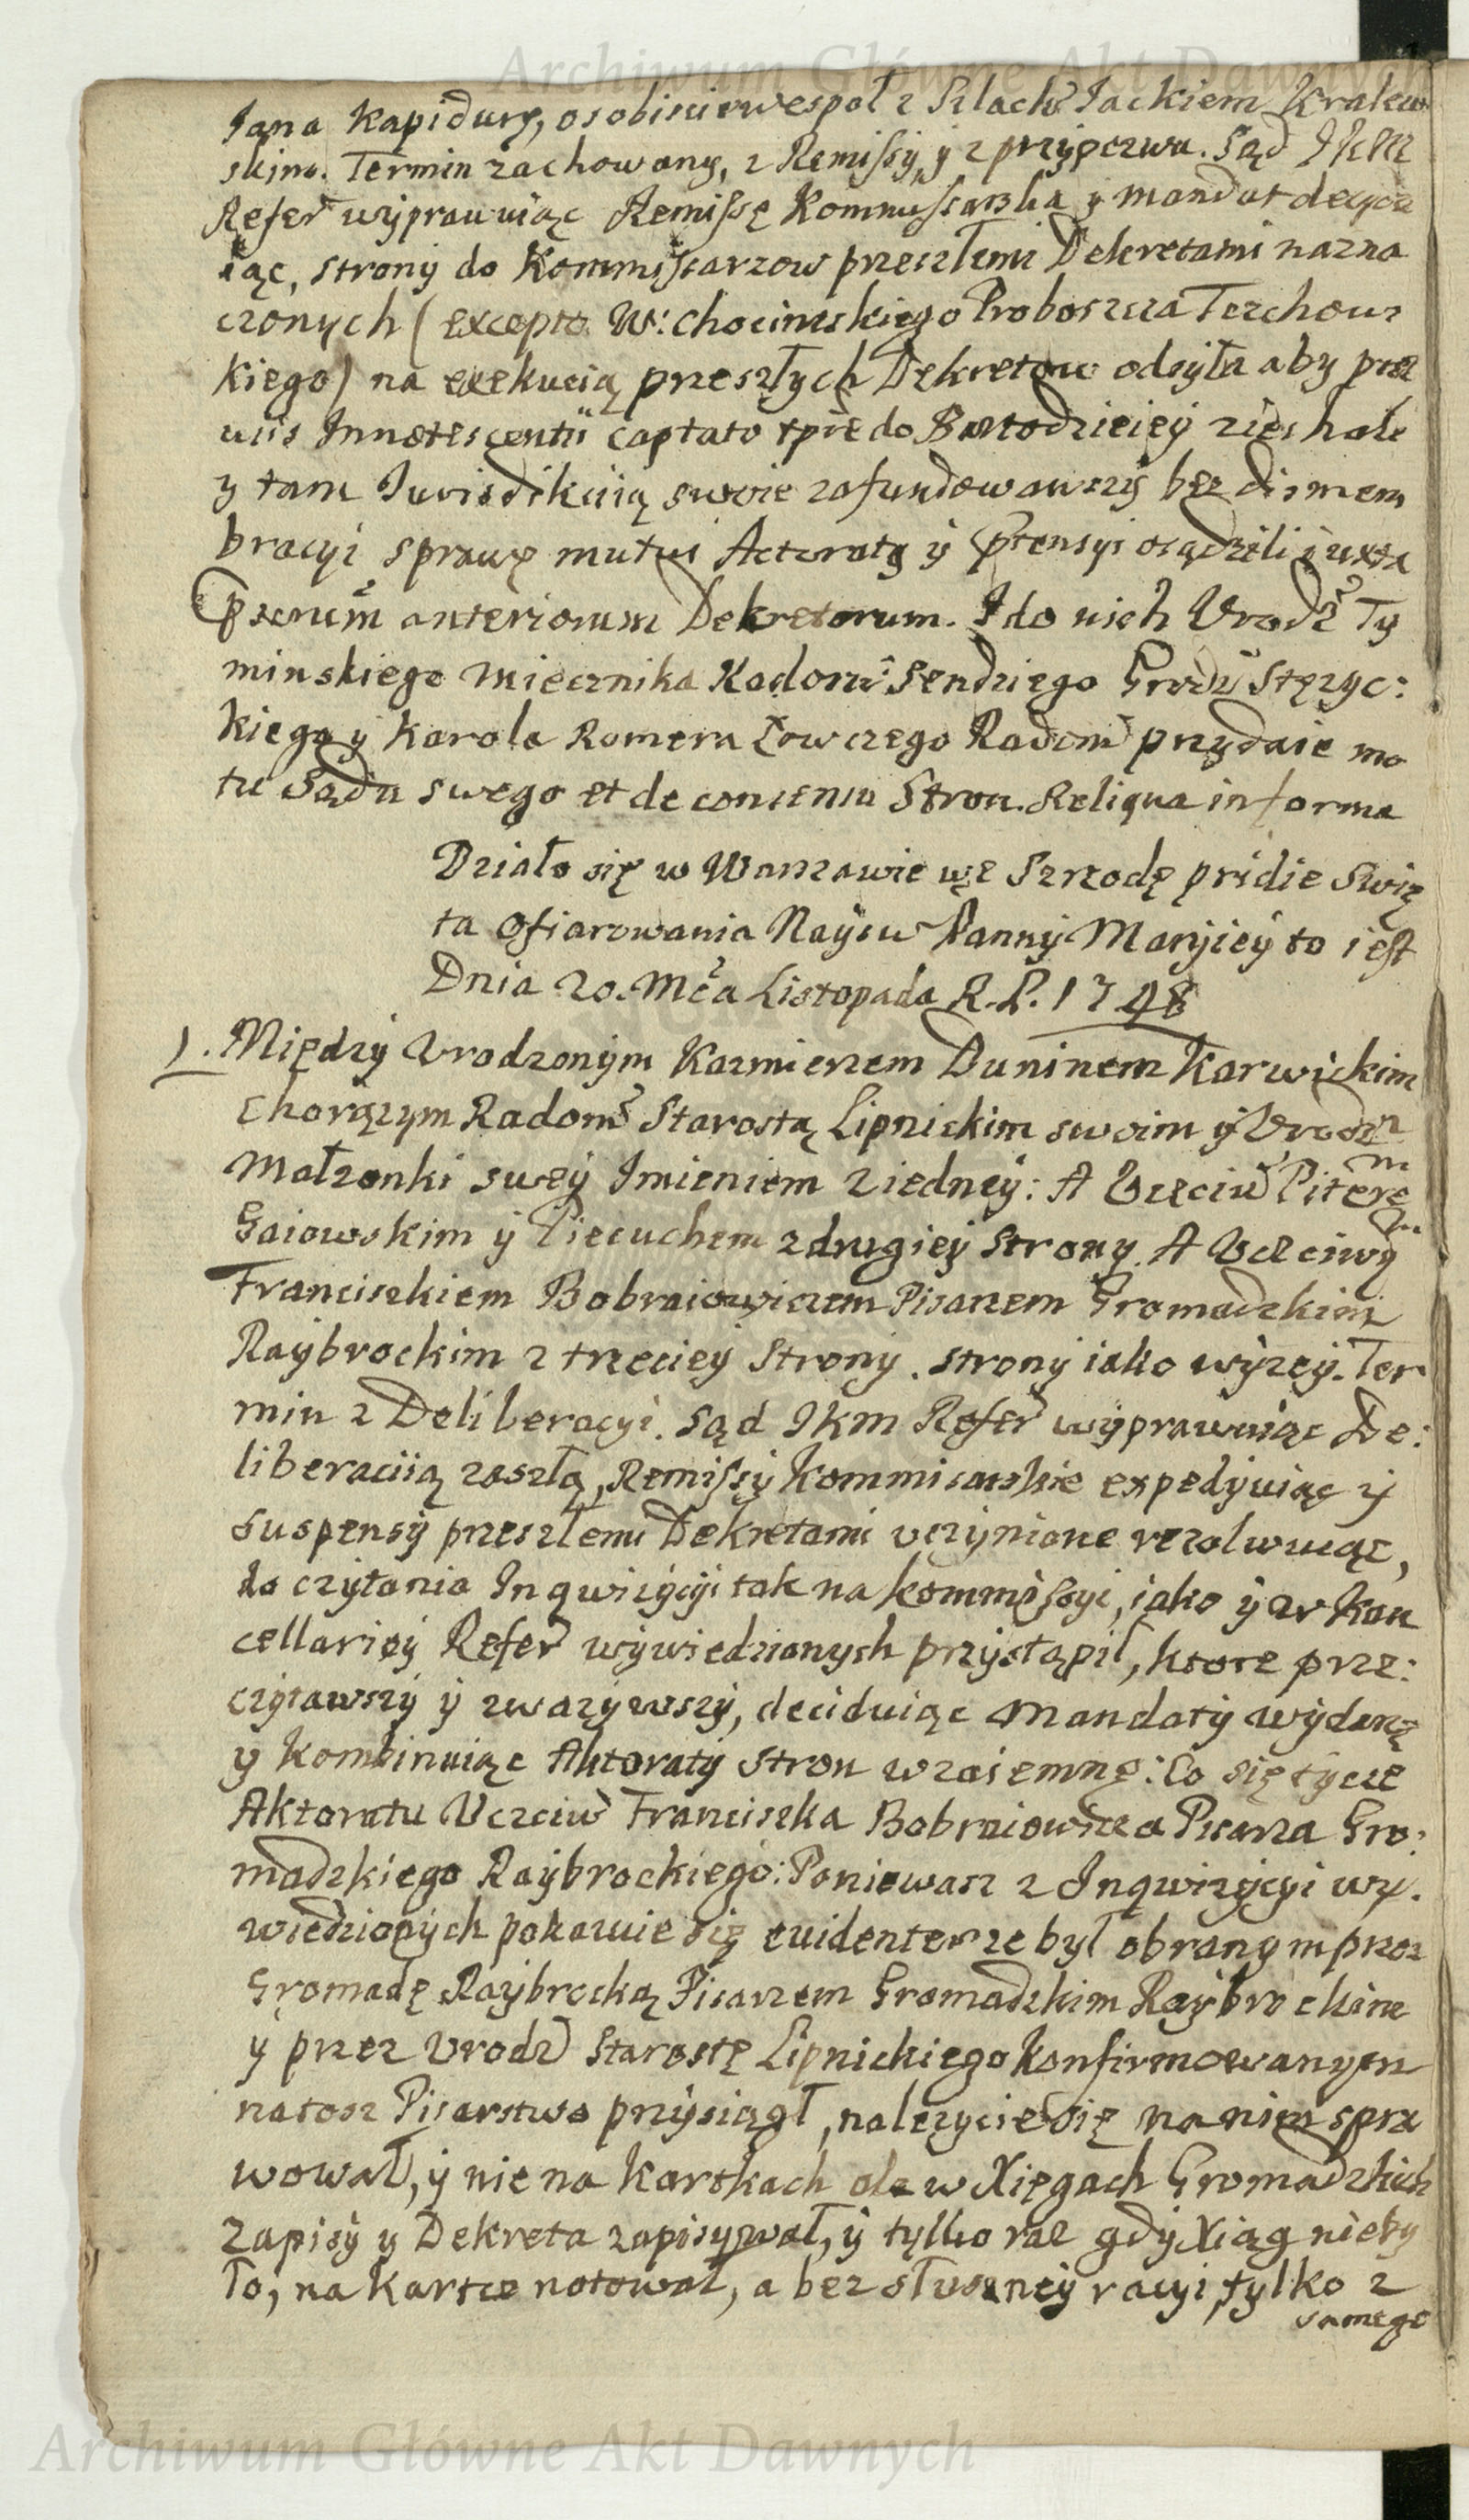 Archiwum Główne Akt Dawnych
Jana Kapidury, osobiscie wespoł z Szlach Jackiem Kralew
skim. Termin zachowany, z Remissy, y z przypozwu. Sąd JKM
Refer wyprawuiąc Remissę Kommissarską y mandat decydu
iąc, strony do Kommissarzow przeszłemi Dekretami nazna
czonych (excepto W: Chocimskiego Proboszcza Terchows
kiego) na exekucią przeszłych Dekretow odsyła aby prae
uiis Innotescentii captato tpre do Białodzieiey ziechali
y tam Jurisdikciią swoie zafundowawszy bez dismem
bracyi sprawę mutui Actoraty y Ptensyi osądzili iuxta
Pscrum anteriorum Dekretorum. I do nich Urodz Ty
minskiego Miecznika Radom Sendziego Grodz Stęzyc:
kiego y Karola Romera Łowczego Radom przydaie mo
tu Sądu swego et de consensu Stron. Reliqua in forma
Działo się w Warszawie we Szrzodę pridie Swię
ta Ofiarowania Nayśw Panny Maryiey to iest
Dnia 20. Mca Listopada R. P. 1748
1. Między Urodzonym Kazmierzem Duninem Karwickim
Chorązym Radom Starostą Lipnickim swoim y Urodz
Małzonki swey Imieniem z iedney: A Uczciw Pitrem
Gaiowskim y Piecuchem z drugiey Strony. A Uczciwym
Franciszkiem Bobraiowiczem Pisarzem Gromadzkim
Raybrockim z trzeciey Strony. strony iako wyzey. Ter
min z Deliberacyi. Sąd JKM Refer wyprawuiąc De:
liberaciią zaszłą, Remissy Kommissarskie expedyuiąc y
suspensy przeszłemi Dekretami uczynione rezolwuiąc,
do czytania Inqwizycyi tak na Kommissyi, iako y w Kan
cellariey Refer wywiedzionych przystąpił, ktore prze:
czytawszy y zwazywszy, deciduiąc Mandaty wydane
y Kombinuiąc Aktoraty stron wzaiemne: Co się tycze
Aktoratu Uczciw Franciszka Bobraiowicza Pisarza Gro:
madzkiego Raybrockiego: Poniewasz z Inqwizycyi wy.
wiedzionych pokazuie się euidenter ze był obranym przez
Gromadę Raybrocką Pisarzem Gromadzkim Raybrockim
y przez Urodz Starostę Lipnickiego Konfirmowanym
na tosz Pisarstwo przysiągł, nalezycie się na nim spra
wował, y nie na Kartkach ale w Xięgach Gromadzkich
zapisy y Dekreta zapisywał, y tylko raz gdy Xiąg nieby
ło, na Kartce notował, a bez słuszney racyi, tylko z
samego
Archiwum Główne Akt Dawnych